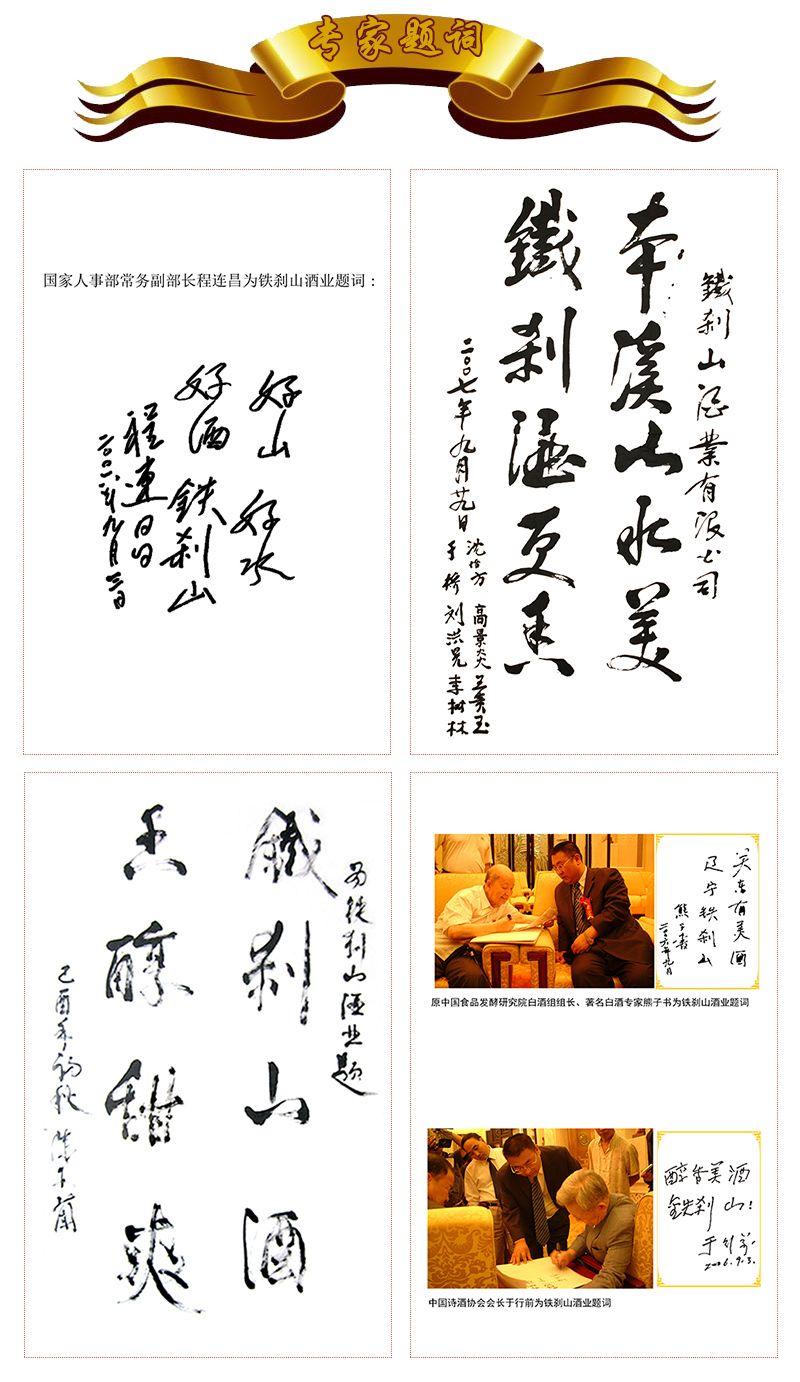 专家题词
国家人事部常务副部长程连昌为铁刹山酒业题词：
好山 好水
好酒 铁刹山
程连昌
二〇〇六年九月三日
鐵刹山酒業有限公司
本溪山水美
鐵刹酒更香
二〇〇七年九月廿九日
沈怡方 高景炎
于桥 刘洪晃 李树林
为铁刹山酒业题
鐵刹山酒
香醇甜爽
己酉年初秋
关东有美酒
辽宁铁刹山
熊子书
二〇〇六年九月
原中国食品发酵研究院白酒组组长、著名白酒专家熊子书为铁刹山酒业题词
醇香美酒
铁刹山！
于行前
2006.9.3.
中国诗酒协会会长于行前为铁刹山酒业题词